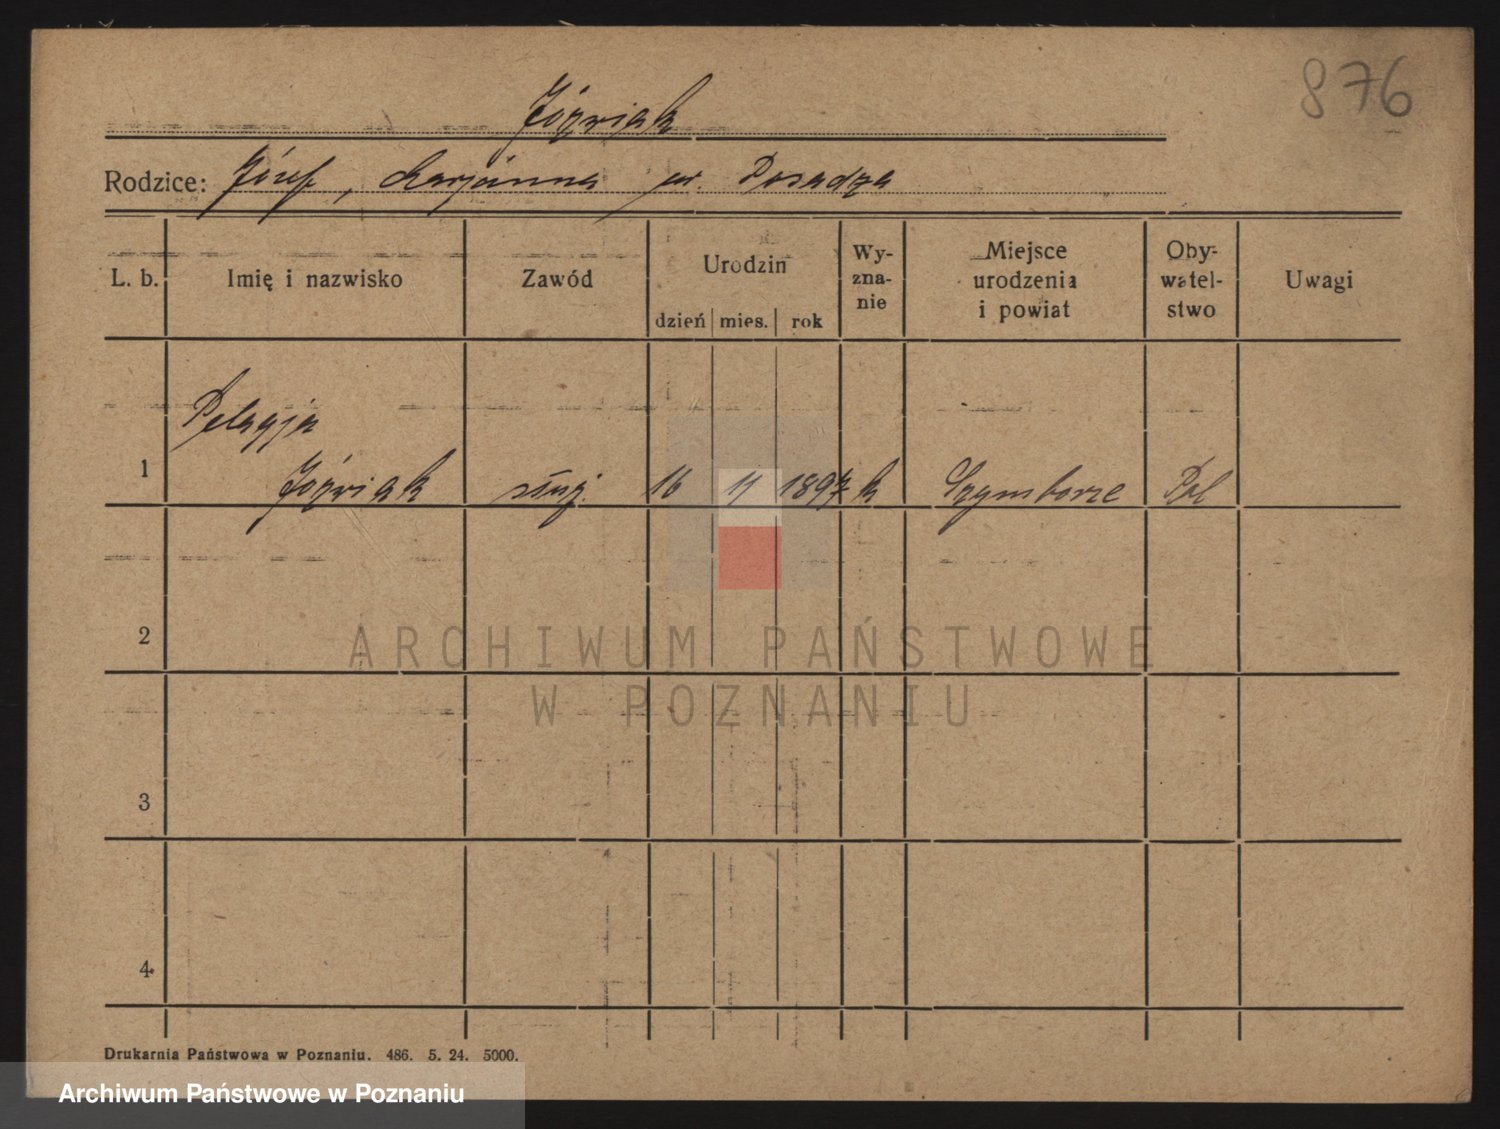 876
Józwiak
Rodzice: Józef, Marjanna ur. Posadza
L. b. Imię i nazwisko Zawód Urodzin dzień mies. rok Wy-zna-nie Miejsce urodzenia i powiat Oby-watel-stwo Uwagi
Pelagja
1 Józwiak służ. 16 11 1897 k Szymborze Pol
2
ARCHIWUM PAŃSTWOWE
W POZNANIU
3
4
Drukarnia Państwowa w Poznaniu. 486. 5. 24. 5000.
Archiwum Państwowe w Poznaniu